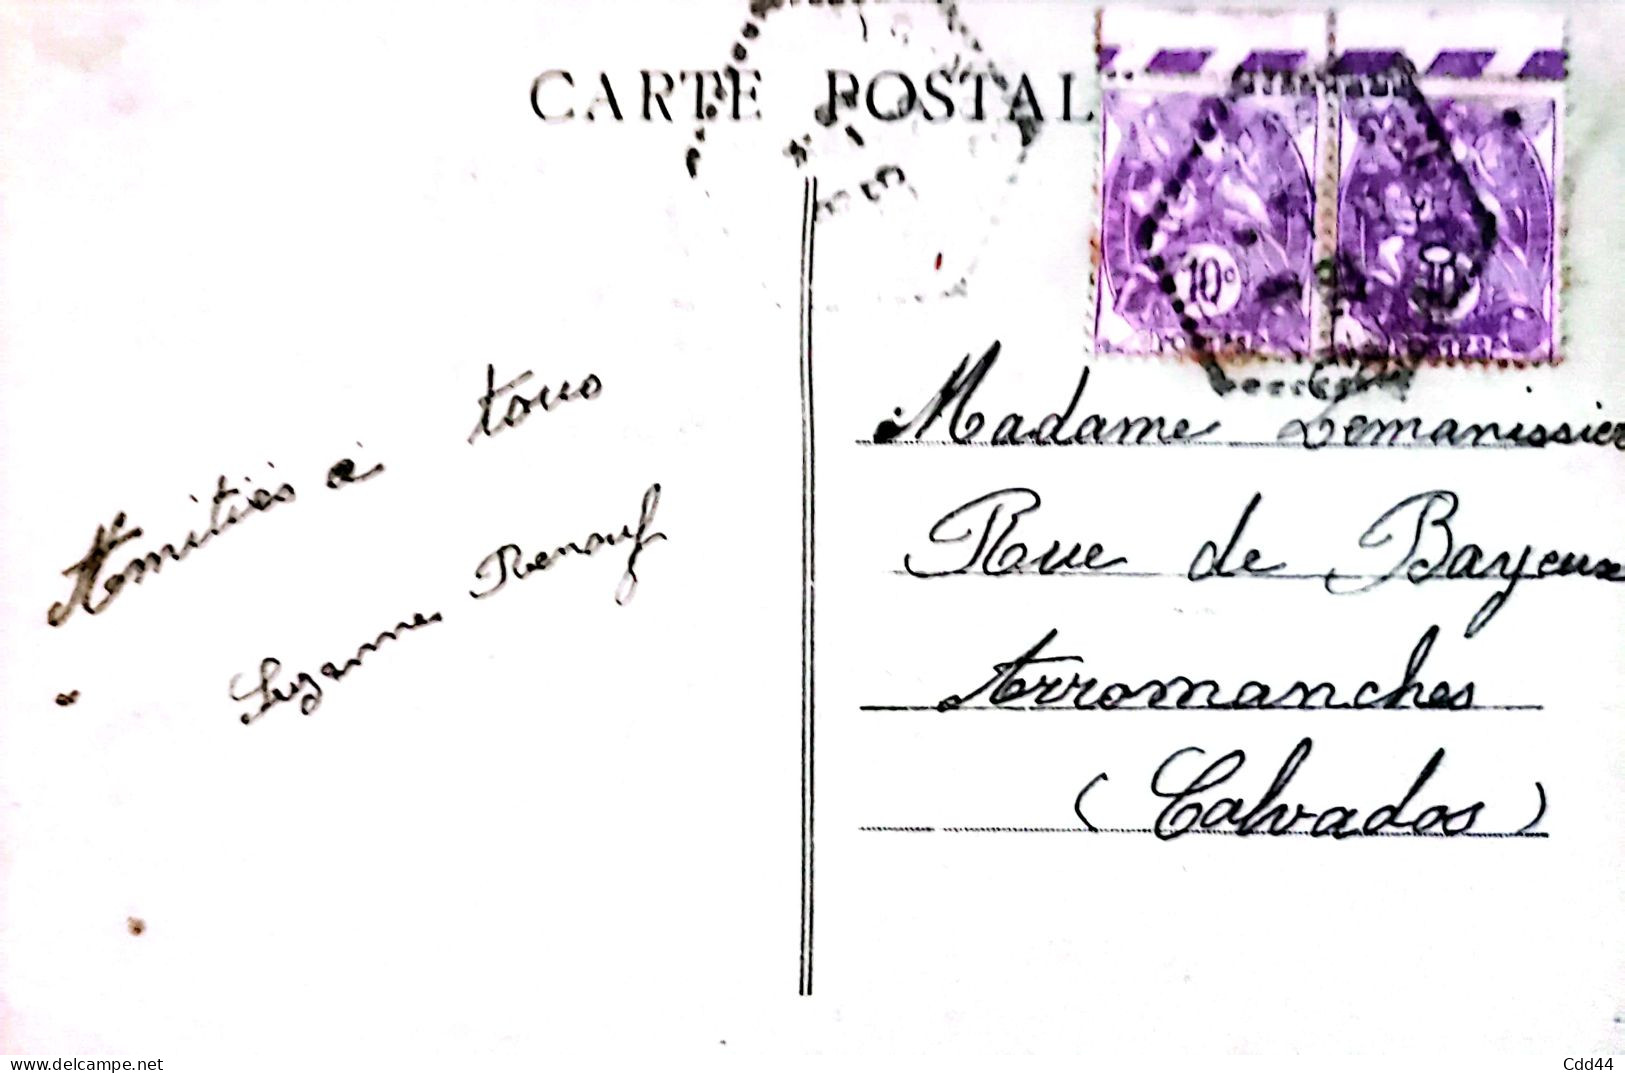 CARTE POSTAL
10c
10
Madame Lemanissier
Rue de Bayeux
Arromanches
(Calvados)
Amitiés à tous
Suzanne Renouf
delcampe.net
Cdd44